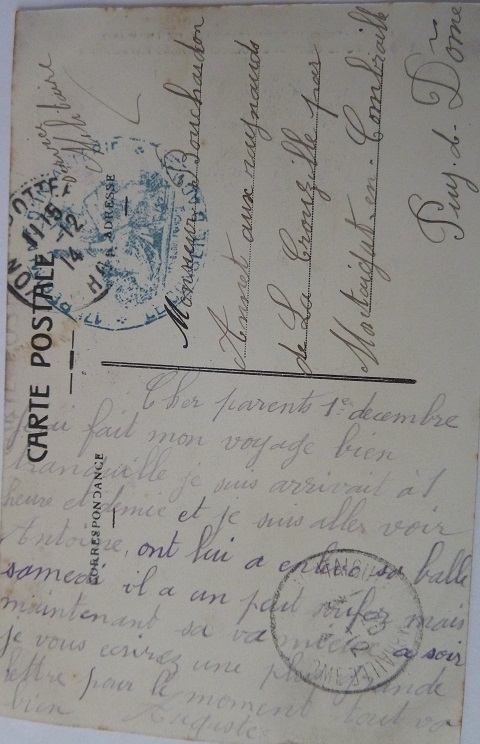 CARTE POSTALE
CORRESPONDANCE
ADRESSE
Monsieur Bouchardon
Annet aux raynauds
de La Crouzille par
Montaigut-en-Combraille
Puy-de-Dôme
11-12
14
Cher parents 1e decembre
j'ai fait mon voyage bien
tranquille je suis arrivait à 1
heure et demie et je suis aller voir
Antoine, ont lui a enleve sa balle
samedi il a un peit soufer mais
maintenant sa va mieux a soir
je vous ecrirez une plus grande
lettre pour le moment tout va
bien Auguste